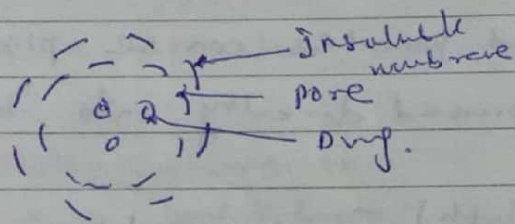 Insoluble
membrane
pore
Drug.